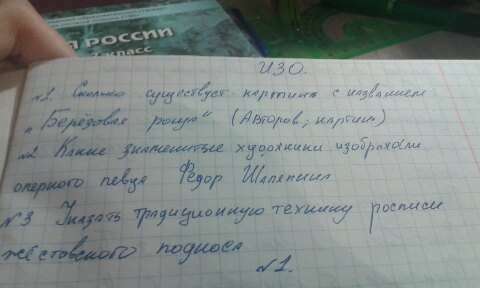 Я РОССИИ
7 класс
ИЗО.
№1. Сколько существует картина с названием
"Берёзовая роща" (Авторов; картин)
№2 Какие знаменитые художники изображали
оперного певца Федор Шаляпина
№3 Указать традиционную технику росписи
жестовского подноса
№1.